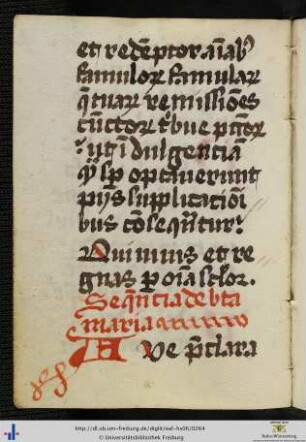 et redẽptor aĩab⁹
famulor famular
q̃ tuar remissiões
cũctor tˀbue pctõr
ut ĩdulgenciã
quã sp optauerunt
pijs supplicacioĩ
bus cõseqũtur:
Qui uiuis et re
gnas p oĩa sclor.
Seqũtia de bta
maria
Aue p̃clara
http://dl.ub.uni-freiburg.de/diglit/waf-hs06/0264
© Universitätsbibliothek Freiburg